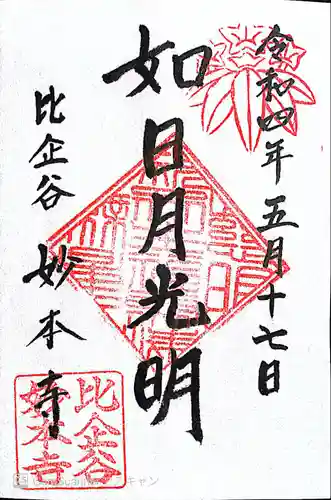 令和四年五月十七日
如日月光明
比企谷
妙本寺
比企谷
妙本寺